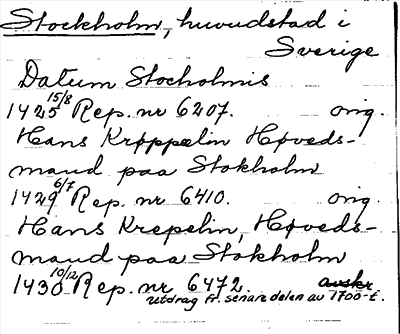 Stockholm, huvudstad i
Sverige
Datum Stocholmis
1425 15/8 Rep. nr 6207. orig.
Hans Krøppelin Høveds-
mand paa Stokholm
1429 6/7 Rep. nr 6410. orig.
Hans Krepelin, Høveds-
mand paa Stokholm
1430 10/2 Rep. nr 6472. avskr.
utdrag fr. senare delen av 1700-t.